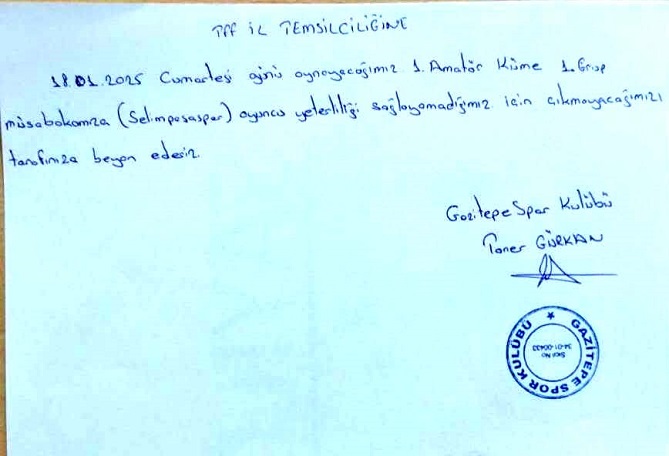 TFF İL TEMSİLCİLİĞİNE
18.01.2025 Cumartesi günü oynayacağımız 1. Amatör Küme 1. Grup
müsabakamıza (Selimpaşaspor) oyuncu yeterliliği sağlayamadığımız için çıkmayacağımızı
tarafınıza beyan ederiz.
Gazitepe Spor Kulübü
Taner GÜRKAN
GAZİTEPE SPOR KULÜBÜ
Sicil No
34-01-00433